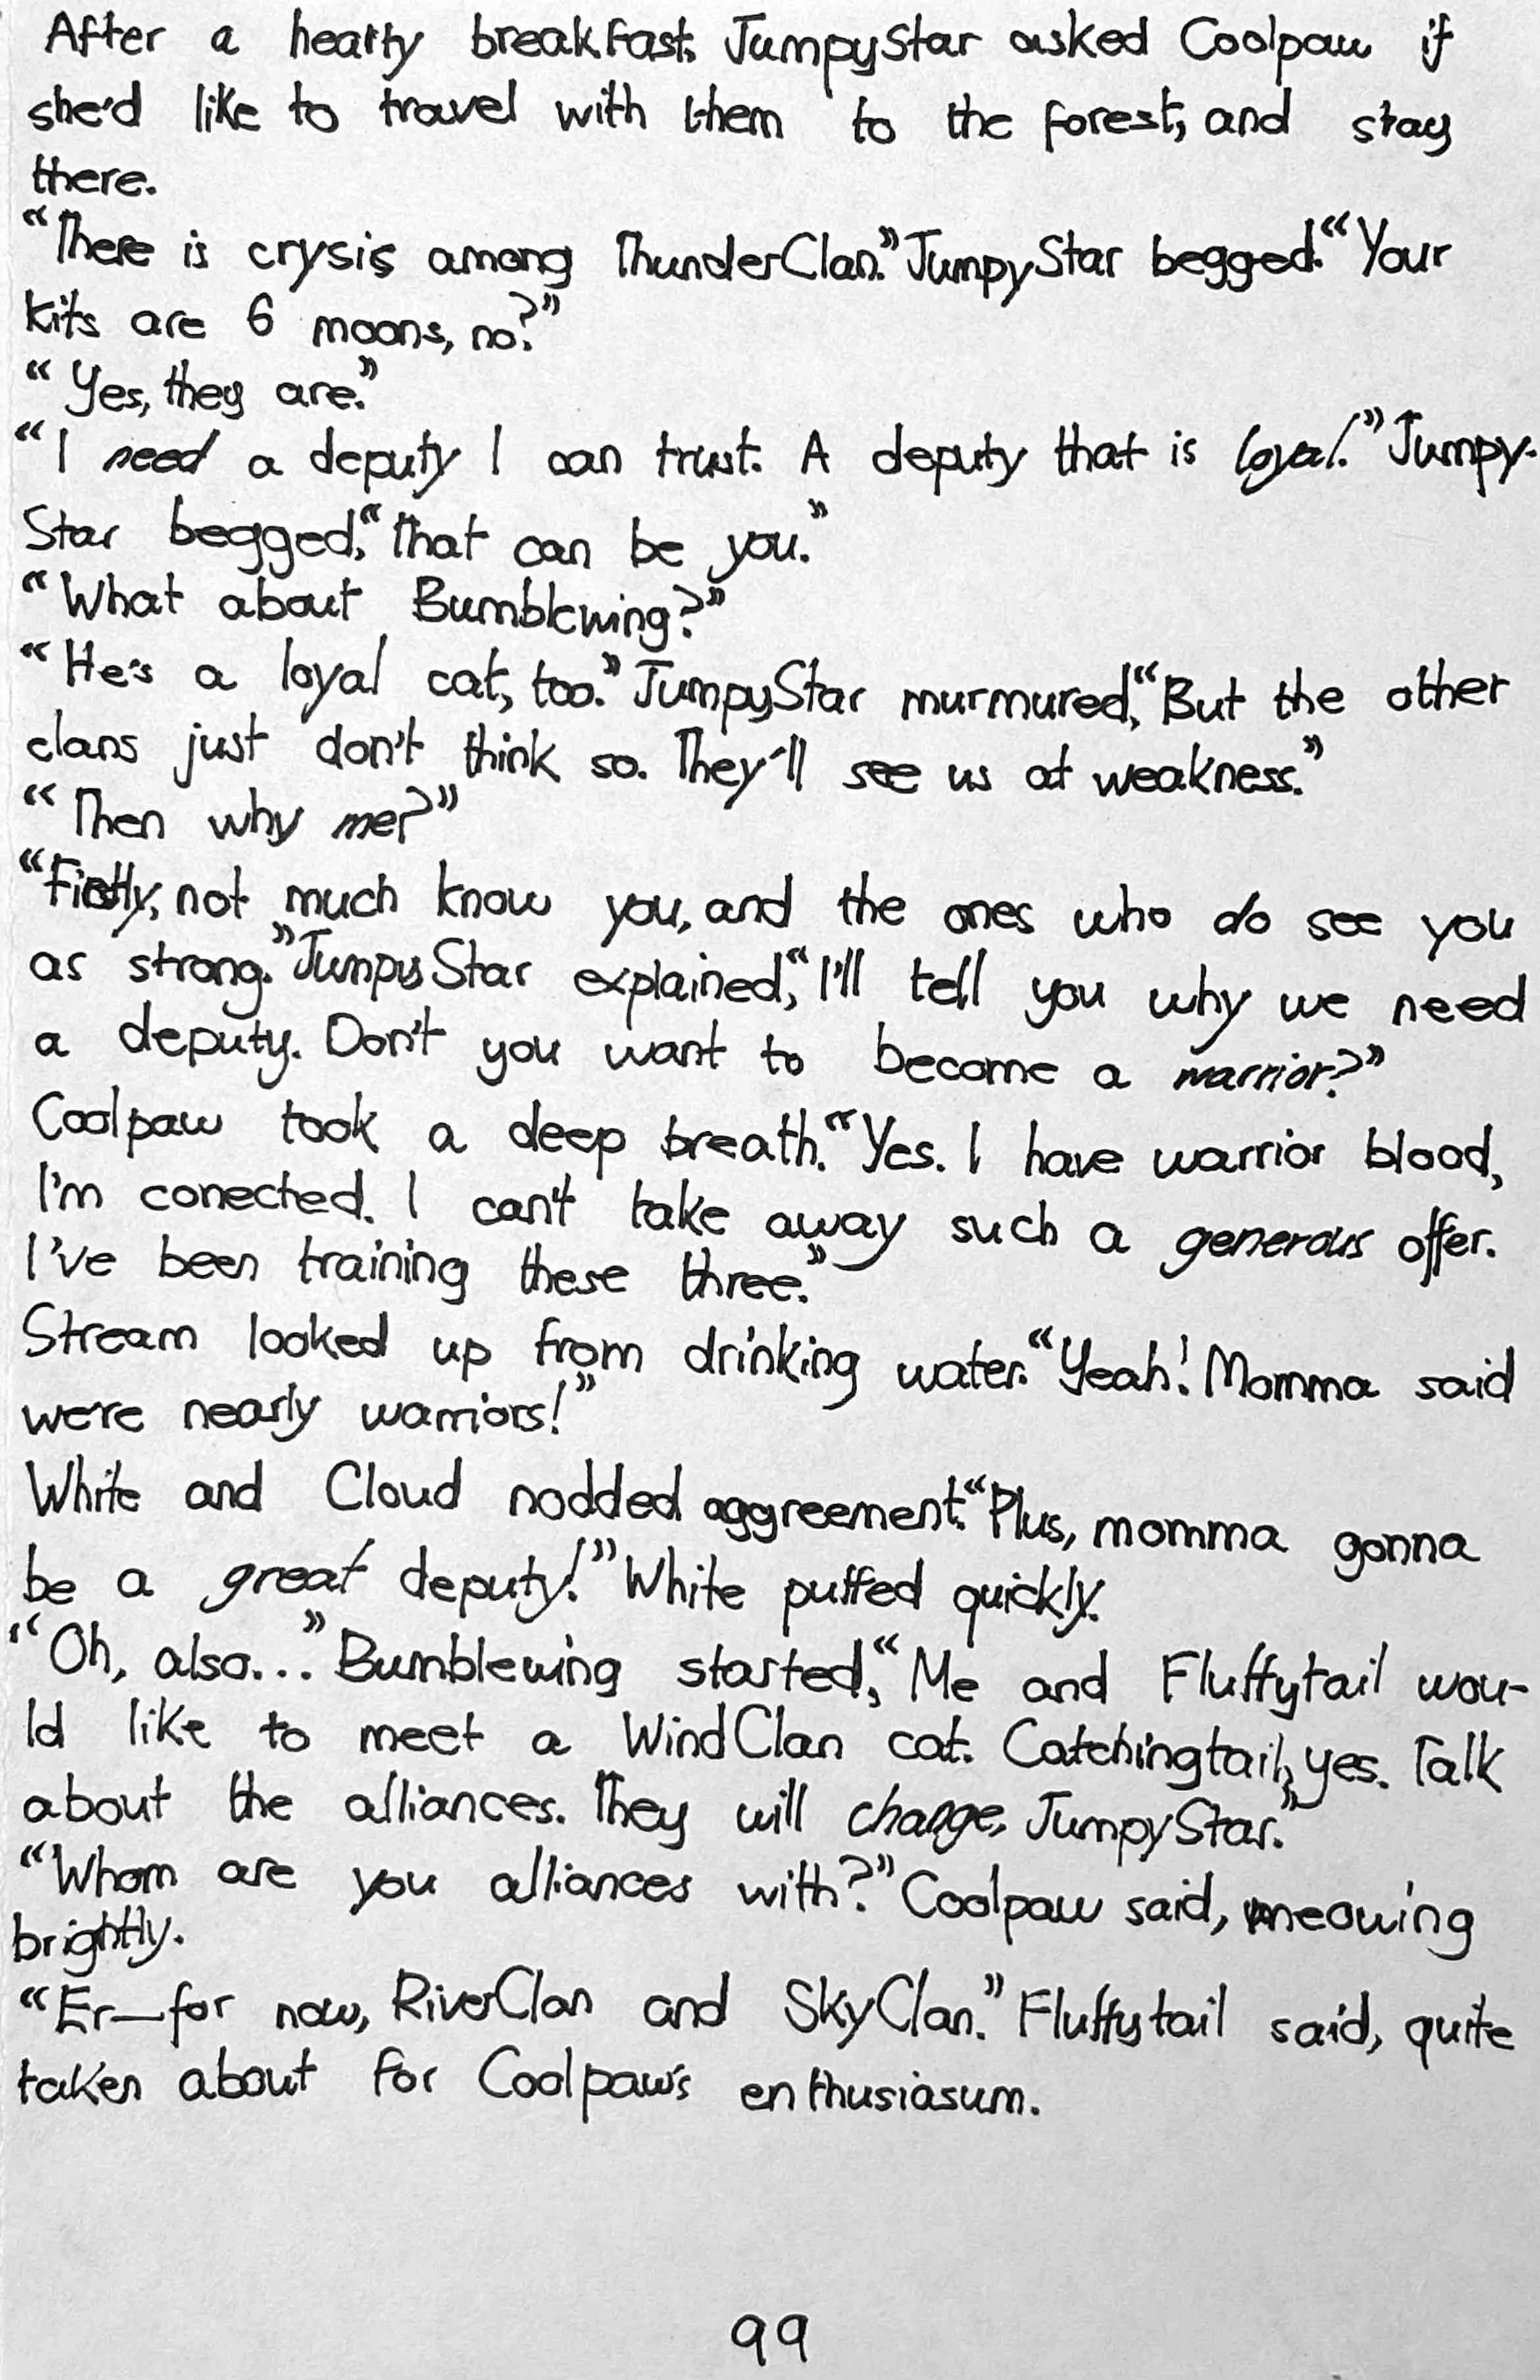 After a hearty breakfast, JumpyStar asked Coolpaw if
she'd like to travel with them to the forest, and stay
there.
“There is crysis among ThunderClan.” JumpyStar begged. “Your
kits are 6 moons, no?”
“Yes, they are.”
“I need a deputy I can trust. A deputy that is loyal.” Jumpy-
Star begged, “That can be you.”
“What about Bumblewing?”
“He's a loyal cat, too.” JumpyStar murmured, “But the other
clans just don't think so. They'll see us at weakness.”
“Then why me?”
“Firstly, not much know you, and the ones who do see you
as strong.” JumpyStar explained, “I'll tell you why we need
a deputy. Don't you want to become a warrior?”
Coolpaw took a deep breath. “Yes. I have warrior blood,
I'm conected. I can't take away such a generous offer.
I've been training these three.”
Stream looked up from drinking water. “Yeah! Momma said
were nearly warriors!”
White and Cloud nodded aggreement. “Plus, momma gonna
be a great deputy!” White puffed quickly.
“Oh, also...” Bumblewing started, “Me and Fluffytail wou-
ld like to meet a WindClan cat. Catchingtail, yes. Talk
about the alliances. They will change, JumpyStar.”
“Whom are you alliances with?” Coolpaw said, meowing
brightly.
“Er—for now, RiverClan and SkyClan.” Fluffytail said, quite
taken about for Coolpaw's enthusiasum.
99